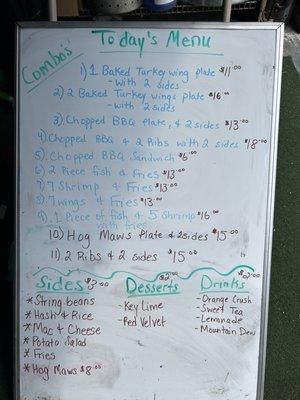 Today's Menu
Combo's
1) 1 Baked Turkey wing plate $11.00
- with 2 sides
2) 2 Baked Turkey wings plate $16.00
- with 2 sides
3) Chopped BBQ Plate, & 2 sides $13.00
4) Chopped BBQ & 2 Ribs with 2 sides $18.00
5) Chopped BBQ Sandwich $6.00
6) 2 Piece fish & Fries $13.00
7) 7 Shrimp & Fries $13.00
8) 7 wings & Fries $13.00
9) 1 Piece of fish & 5 Shrimp $16.00
with fries
10) Hog Maws Plate & 2 sides $15.00
11) 2 Ribs & 2 sides $15.00
Sides $3.00
* String beans
* Hash & Rice
* Mac & Cheese
* Potato Salad
* Fries
* Hog Maws $8.00
Desserts
- Key Lime
- Red Velvet
$2.00
Drinks
- Orange Crush
- Sweet Tea
- Lemonade
- Mountain Dew